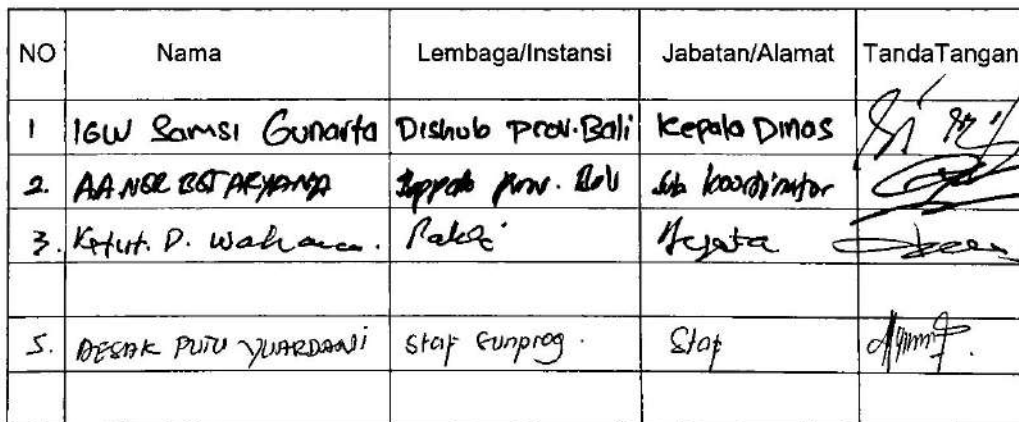 NO Nama Lembaga/Instansi Jabatan/Alamat TandaTangan
1 IGW Samsi Gunarta Dishub prov. Bali Kepala Dinas
2. AA NGR BGS ARYANA prov. Bali Sub koordinator
3. Ketut. D.
5. DESAK PUTU YUARDANI Staf Sunprog. Staf